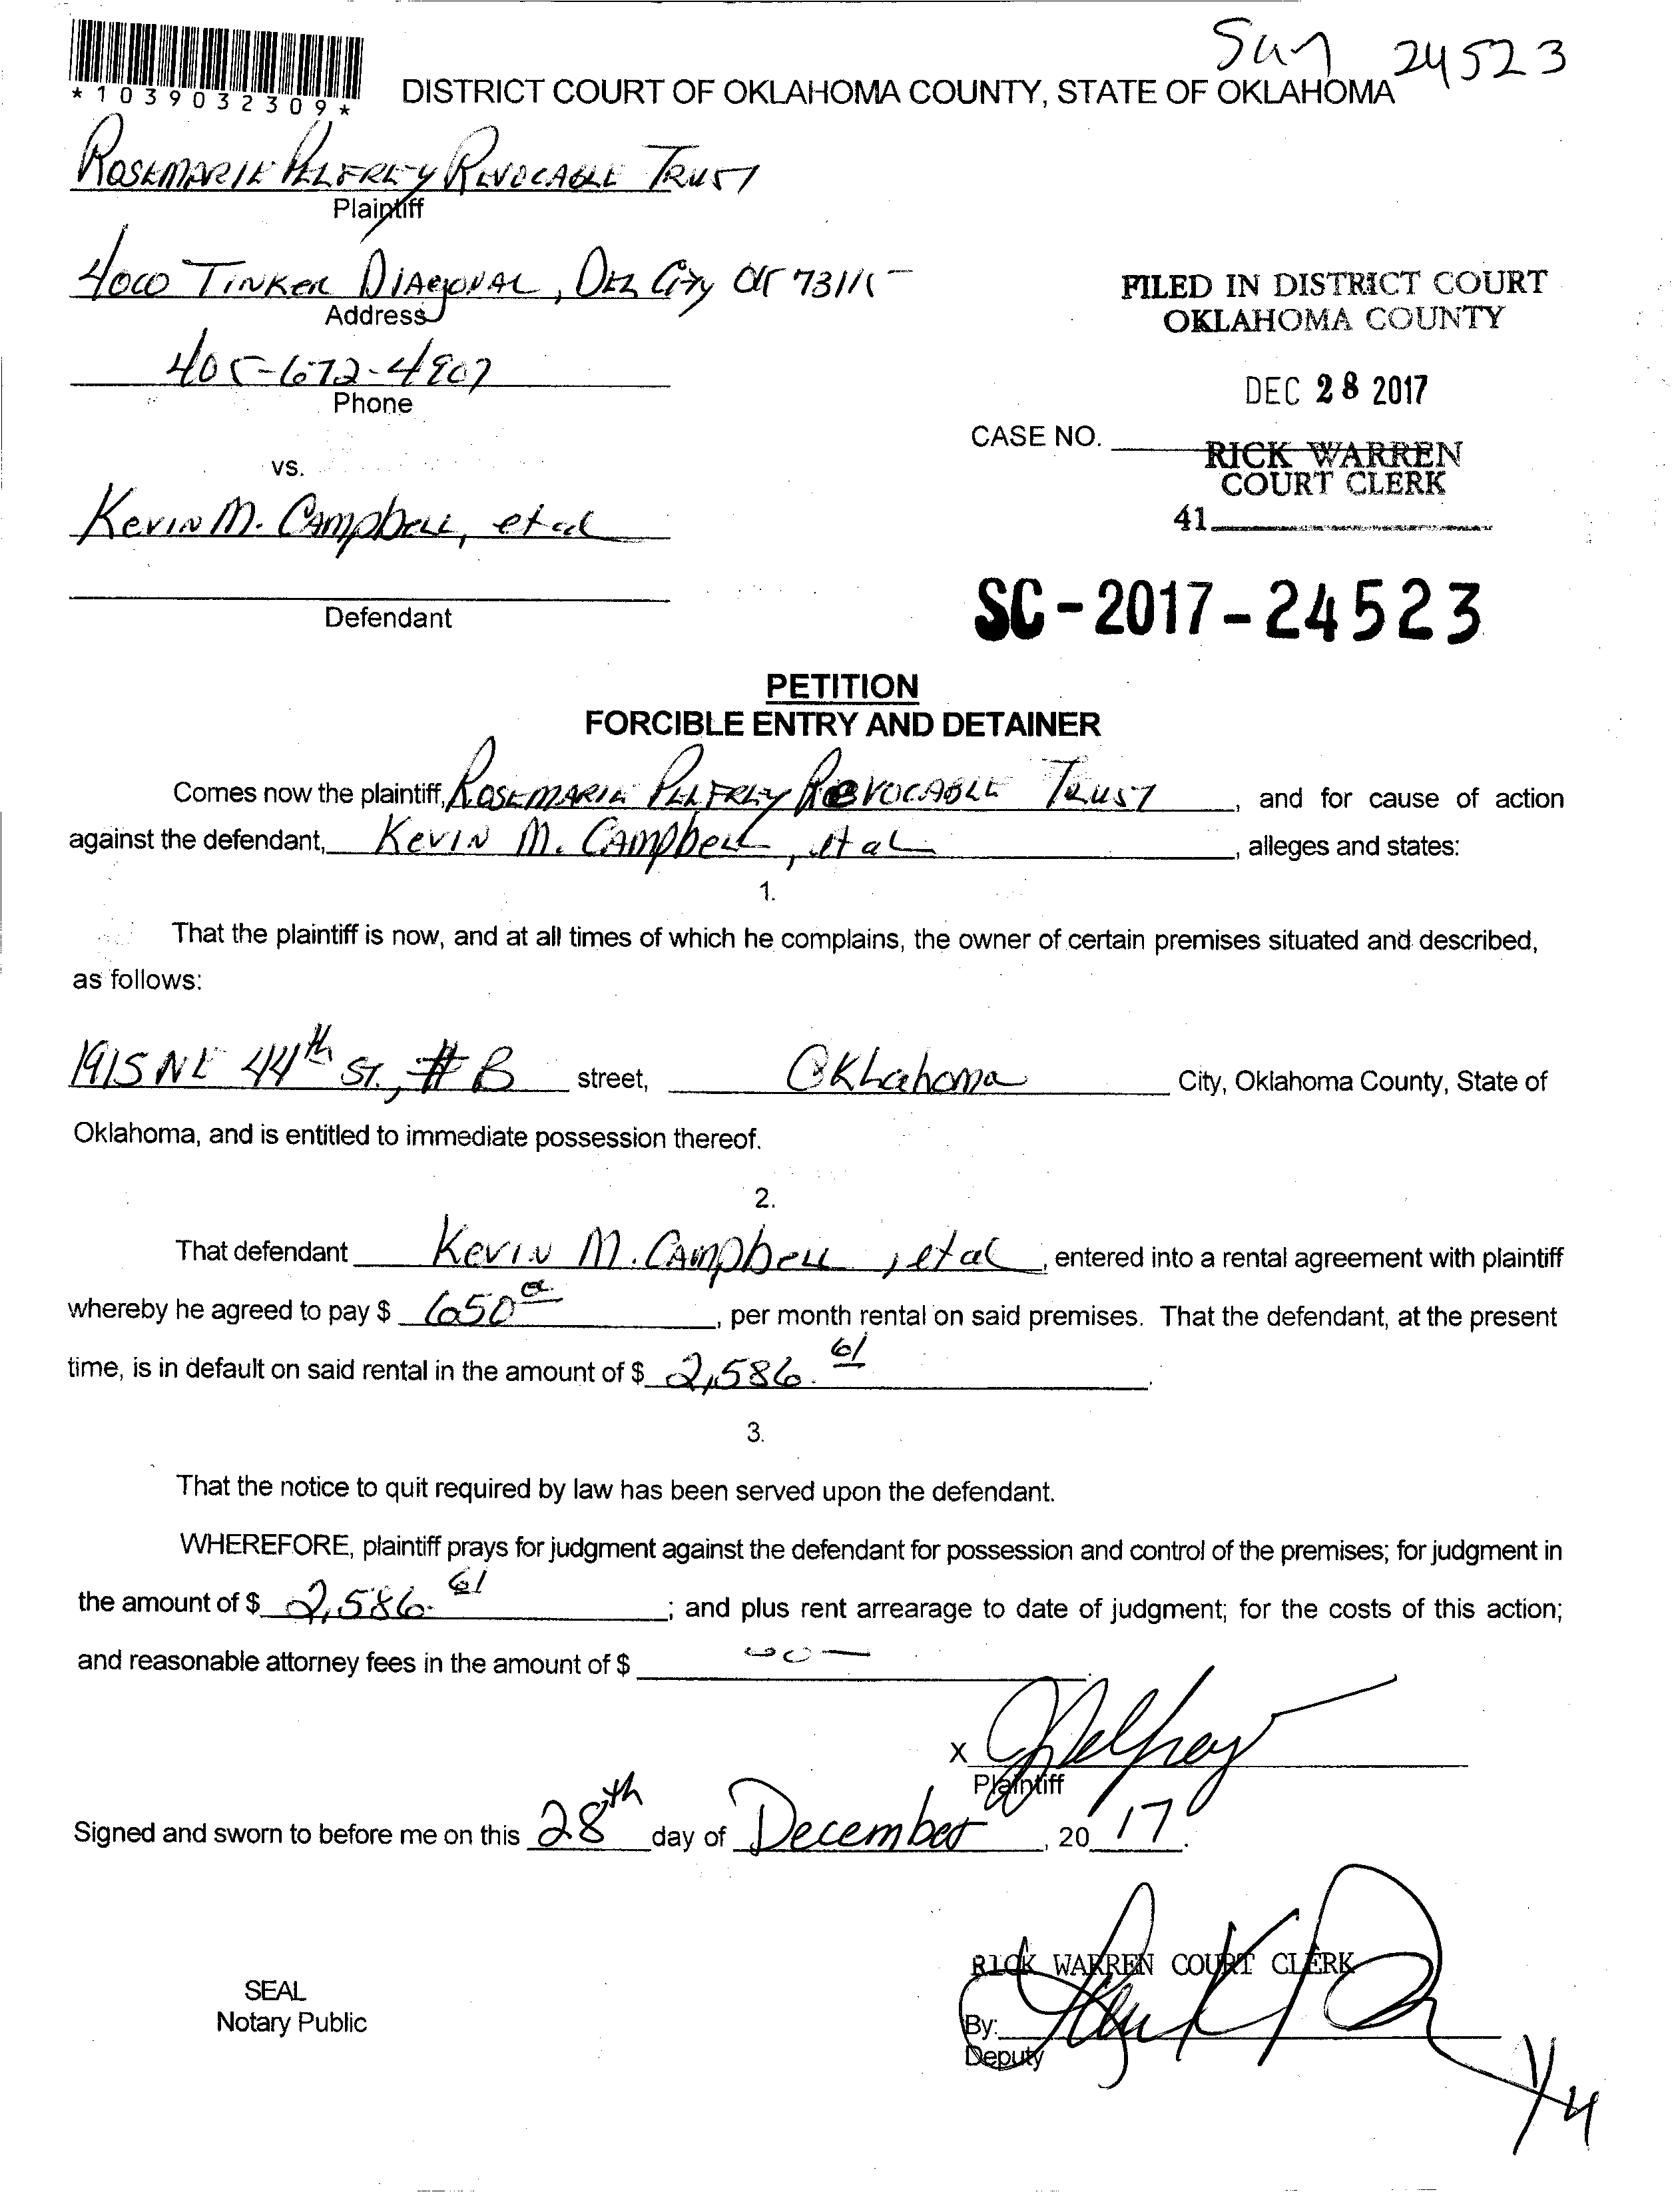 Sum 24523
*1039032309*
DISTRICT COURT OF OKLAHOMA COUNTY, STATE OF OKLAHOMA
ROSEMARIE PELFREY REVOCABLE TRUST
Plaintiff
4000 TINKER DIAGONAL, DEL City OK 73115
Address
FILED IN DISTRICT COURT
OKLAHOMA COUNTY
405-672-4907
Phone
DEC 28 2017
CASE NO.
RICK WARREN
COURT CLERK
vs.
41
Kevin M. Campbell, et al
Defendant
SC-2017-24523
PETITION
FORCIBLE ENTRY AND DETAINER
Comes now the plaintiff, ROSEMARIE PELFREY REVOCABLE TRUST, and for cause of action
against the defendant, Kevin M. Campbell, et al, alleges and states:
1.
That the plaintiff is now, and at all times of which he complains, the owner of certain premises situated and described,
as follows:
1915 NE 44th ST., #B street, Oklahoma City, Oklahoma County, State of
Oklahoma, and is entitled to immediate possession thereof.
2.
That defendant Kevin M. Campbell, et al, entered into a rental agreement with plaintiff
whereby he agreed to pay $ 650 00, per month rental on said premises. That the defendant, at the present
time, is in default on said rental in the amount of $ 2,586.61.
3.
That the notice to quit required by law has been served upon the defendant.
WHEREFORE, plaintiff prays for judgment against the defendant for possession and control of the premises; for judgment in
the amount of $ 2,586.61; and plus rent arrearage to date of judgment; for the costs of this action;
and reasonable attorney fees in the amount of $ -0-.
X
Plaintiff
Signed and sworn to before me on this 28th day of December, 2017.
RICK WARREN COURT CLERK
SEAL
Notary Public
By:
Deputy
1/4